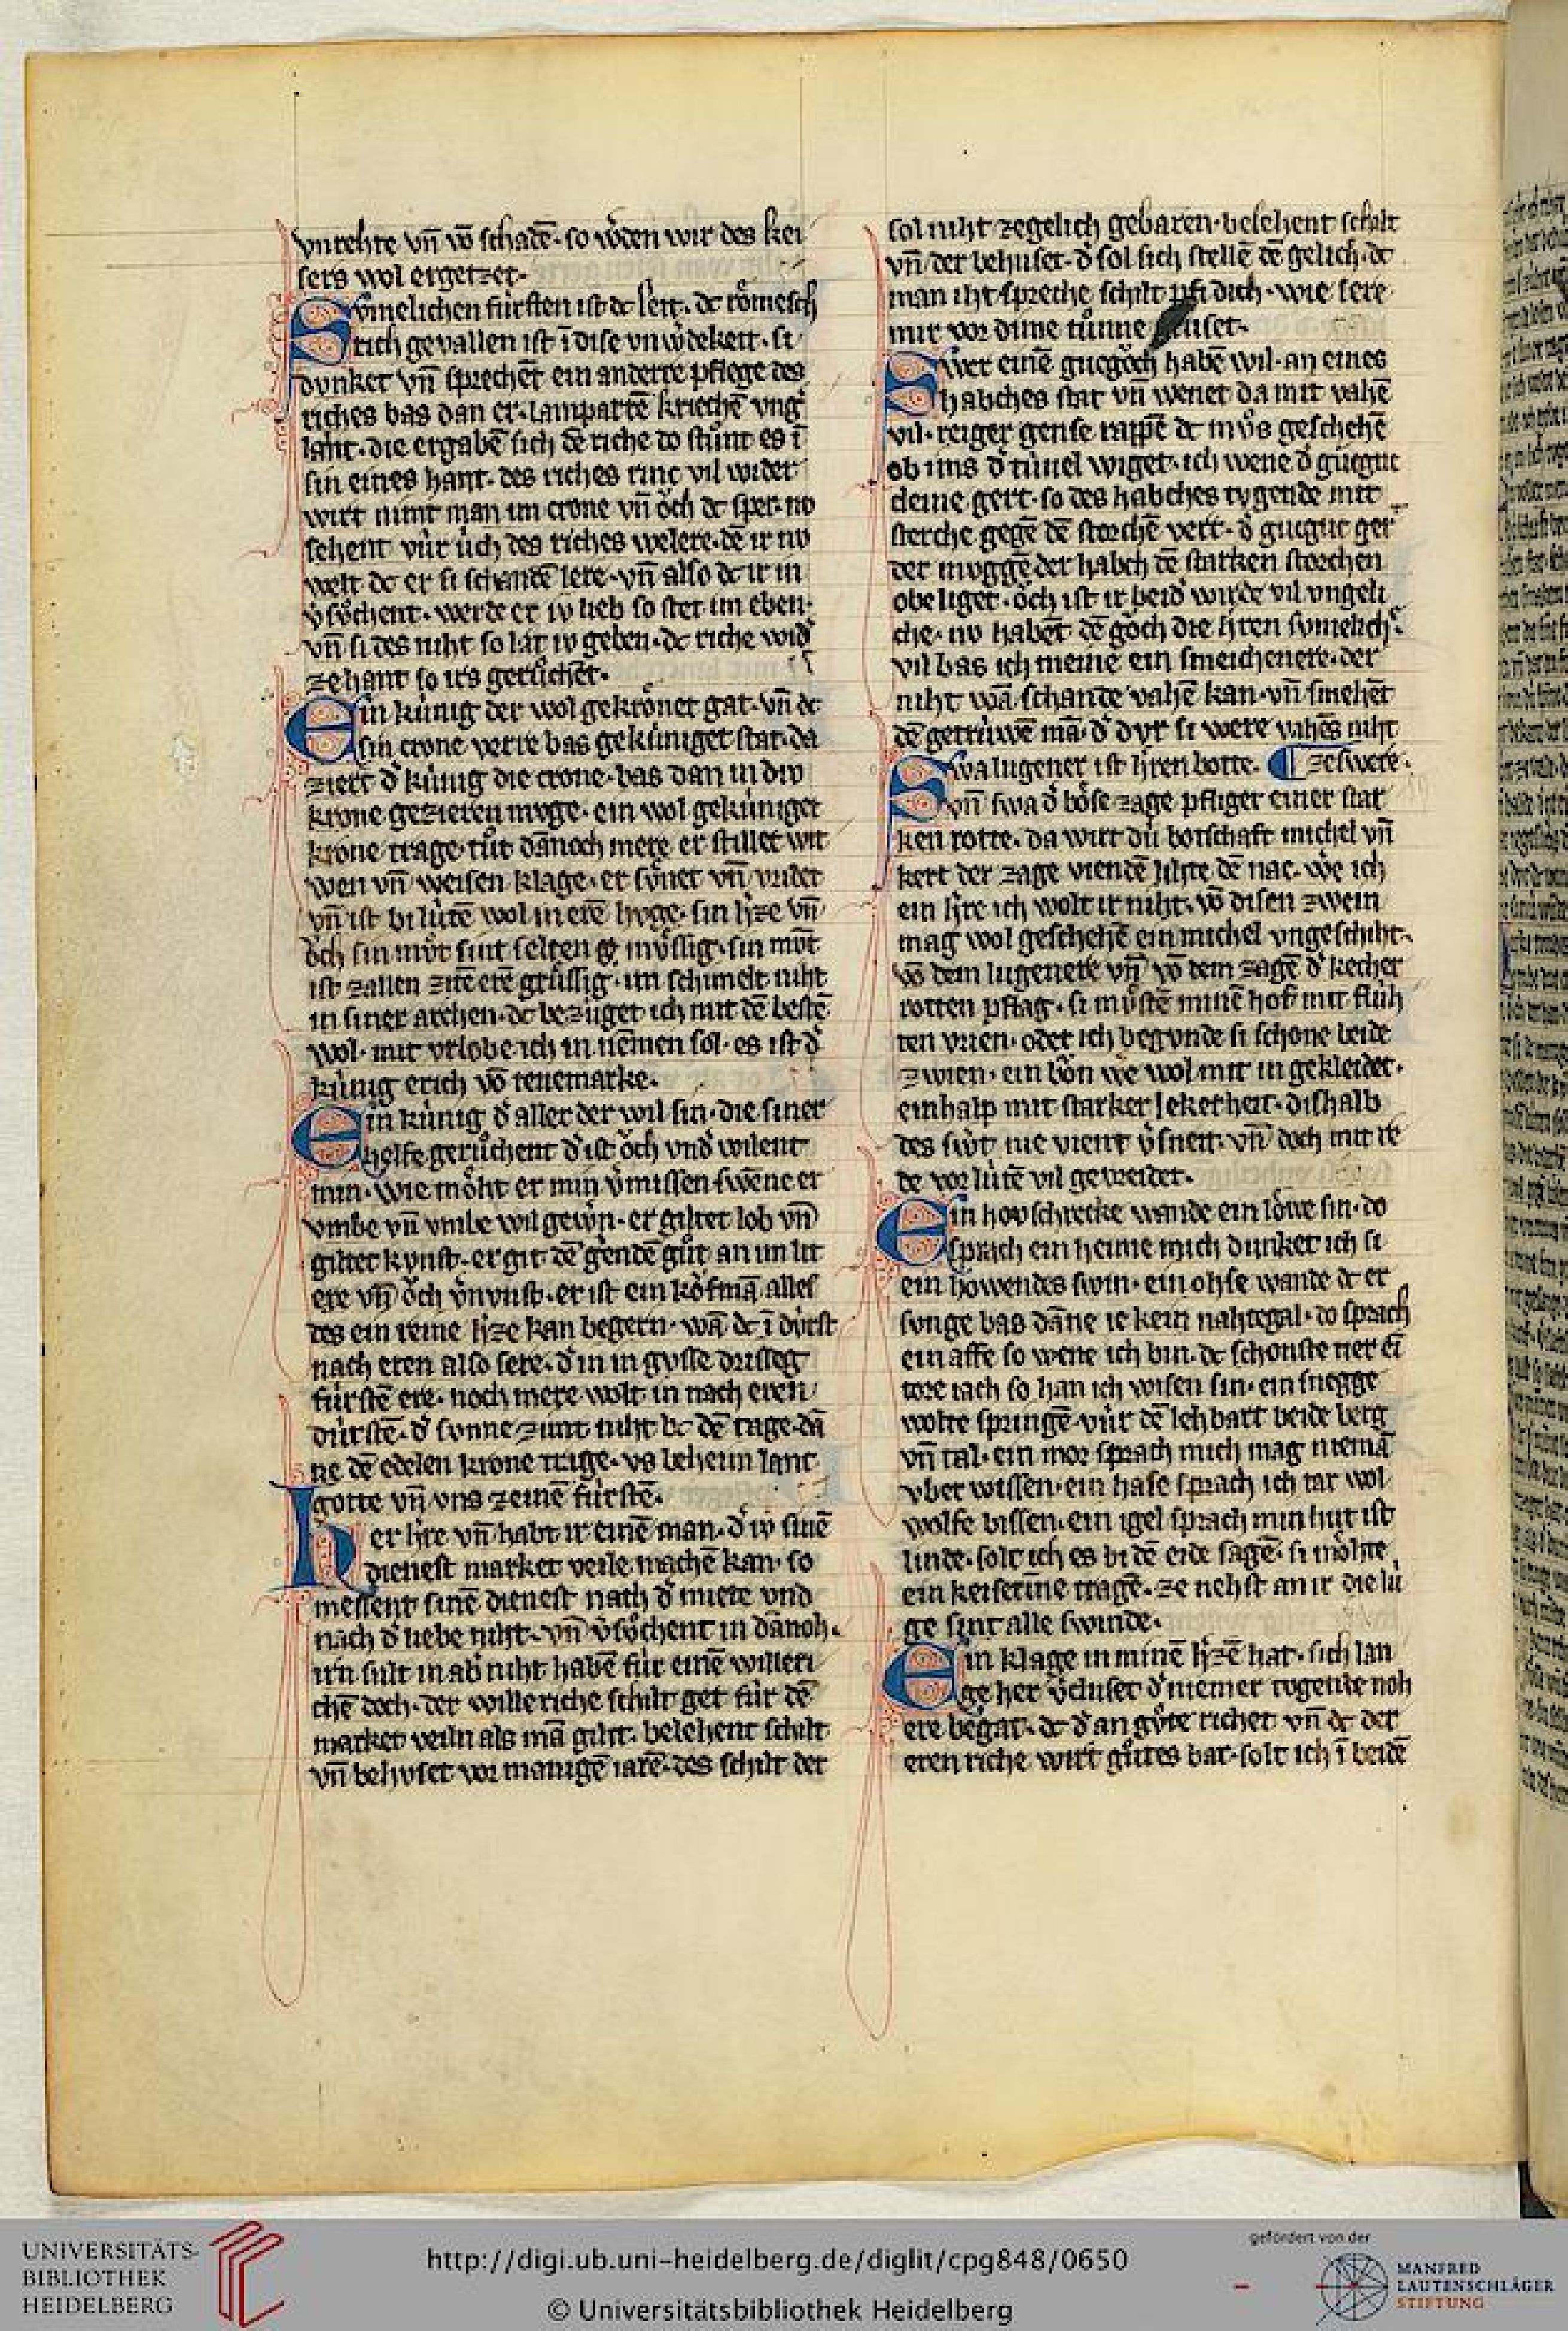 vnrehte vn̄ vō schadē· so wͦden wir des kei
sers wol ergetzet·
Svmelichen fúrsten ist dc leit· dc rômesch
rich gevallen ist ī dise vnwͦdekeit· si
dvnket vn̄ sprechēt ein anderre pflege des
riches bas dan er· lamparte͂ kriechē vnǵ
lant· die ergabē sich dē riche do stu̍nt es ī
sin eines hant· des riches rinc vil wider
wirt nimt man im crone vn̄ ôch dc sper· nv
sehent vúr úch des riches welere· dē ir nv
welt dc er si schandē lere· vn̄ also dc ir in
v̾sôchent· werde er iv lieb so stet im eben·
vn̄ si des niht so lat iv geben· dc riche wid̾
zehant so irs gerůchēt·
Ein kúnig der wol gekrônet gat· vn̄ dc
sin crone verre bas gekúniget stat· da
ziert d̾ kúnig die crone· bas dan in div
krone gezieren mvge· ein wol gekúniget
krone trage· tůt dānoch mere er stillet wit
wen vn̄ weisen klage· er sv̊net vn̄ vridet
vn̄ ist bi lútē wol in erē hvge· sin h̾ze vn̄
ôch sin mv̊t sint selten mv̊ssig· sin mv̊t
ist zallen zitē erē grússig· im schimelt niht
in siner archen· dc bezúget ich mit dē bestē
wol· mit vrlobe ich in nēmen sol· es ist d̾
kúnig erich vō tenemarke·
Ein kúnig d̾ aller der wil sin· die siner
helfe gerůchent d̾ ist ôch vnd̾ wilent
min· wie môht er min v̾missen swēne er
vmbe vn̄ vmbe wil gew̾n· er giltet lob vn̄
giltet kvnst· er git dē gendē gůt an im lit
ere vn̄ ôch v̾nvnst· er ist ein kôfmā alles
des ein reine h̾ze kan begern· wā dc ī dúrst
nach eren also sere· d̾ in in gvsse drisseg
fúrstē ere· noch mere wolt in nach eren
dúrstē· d̾ svnne zimt niht bc dē tage· dā
ne dē edelen krone trage· vs beheim lant
gotte vn̄ vns zeinē fúrstē·
her h̾re vn̄ habt ir einē man· d̾ iv sinē
dienest market veile machē kan· so
messent sinē dienest nach d̾ miete vnd
nach d̾ liebe niht· vn̄ v̾sôchent in dānoh·
irn sult in ab̾ niht habē fúr einē willeri
chē doch· der willeriche schilt get fúr dē
market veiln als mā gilt· belehent schilt
vn̄ behvset vor manigē iarē· des schilt der
sol niht zegelich gebaren· belehent schilt
vn̄ der behuset· d̾ sol sich stellē dē gelich· dc
man iht spreche schilt pfi dich· wie sere
mir vor dime túnne
Swer einē gucgôch habē wil· an eines
habches stat vn̄ wenet da mit vahē
vil· reiger gense rappē dc mv̊s geschehē
ob ims d̾ túuel wiget· ich wene d̾ gucguc
cleine gert· so des habches tvgende mit
sterche gegē dē storchē vert· d̾ gucguc ger
der mvggē der habch dē starken storchen
obe liget· ôch ist ir beid̾ wirde vil vngeli
che· nv habēt dē gôch die h̾ren svmelich̾
vil bas ich meine ein smeichenere· der
niht wā schande vahē kan· vn̄ smehēt
dē getrúwē mā· d̾ dvr si were vahēs niht
Swa lugener ist h̾ren botte· ze swere·
vn̄ swa d̾ bôse zage pfliget einer star
ken rotte· da wirt dú botschaft michel vn̄
kert der zage viendē lihte dē nac· w̾e ich
ein h̾re ich wolt ir niht· vō disen zwein
mag wol geschehē ein michel vngeschiht·
vō dem lugenere vn̄ vō dem zagē d̾ kecher
rotten pflag· si mv̊stē minē hof mit flúh
ten vrien· oder ich begvnde si schone beide
zwien· ein bôn w̾e wol mit in gekleidet·
einhalp mit starker lekerheit· dishalb
des sw̾t nie vient v̾sneit· vn̄ doch mit re
de vor lútē vil geweidet·
Ein hov schrecke wande ein lôwe sin· do
sprach ein heime mich dunket ich si
ein hôwendes swin· ein ohse wande dc er
svnge bas dāne ie kein nahtegal· do sprach
ein affe so wene ich bin· dc schonste tier ei
tore iach so han ich wisen sin· ein snegge
wolte springē vúr dē lebbart beide berg
vn̄ tal· ein mor sprach mich mag niemā
vber wissen· ein hase sprach ich tar wol
wolfe bissen· ein igel sprach min hut ist
linde· solt ich es bi dē eide sagē· si môhte
ein keiserīne tragē· ze nehst an ir die lú
ge sint alle swinde·
Ein klage in minē h̾zē hat· sich lan
ge her v̾cluset d̾ niemer tvgende noh
ere begat· dc d̾ an gv̊te richet vn̄ dc der
eren riche wirt gůtes bar· solt ich ī beidē
UNIVERSITÄTS-
BIBLIOTHEK
HEIDELBERG
http://digi.ub.uni-heidelberg.de/diglit/cpg848/0650
© Universitätsbibliothek Heidelberg
gefördert von der
MANFRED
LAUTENSCHLÄGER
STIFTUNG